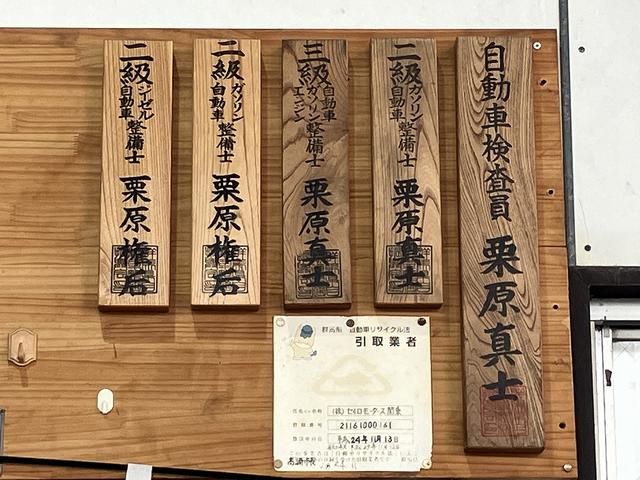 自動車検査員 栗原真士
二級ガソリン自動車整備士 栗原真士
三級自動車ガソリンエンジン整備士 栗原真士
二級ガソリン自動車整備士 栗原権后
二級ジーゼル自動車整備士 栗原権后
群馬県 自動車リサイクル法
引取業者
(株)セイロモータース関東
登録番号
21161000161
平成24年11月13日
高崎市長